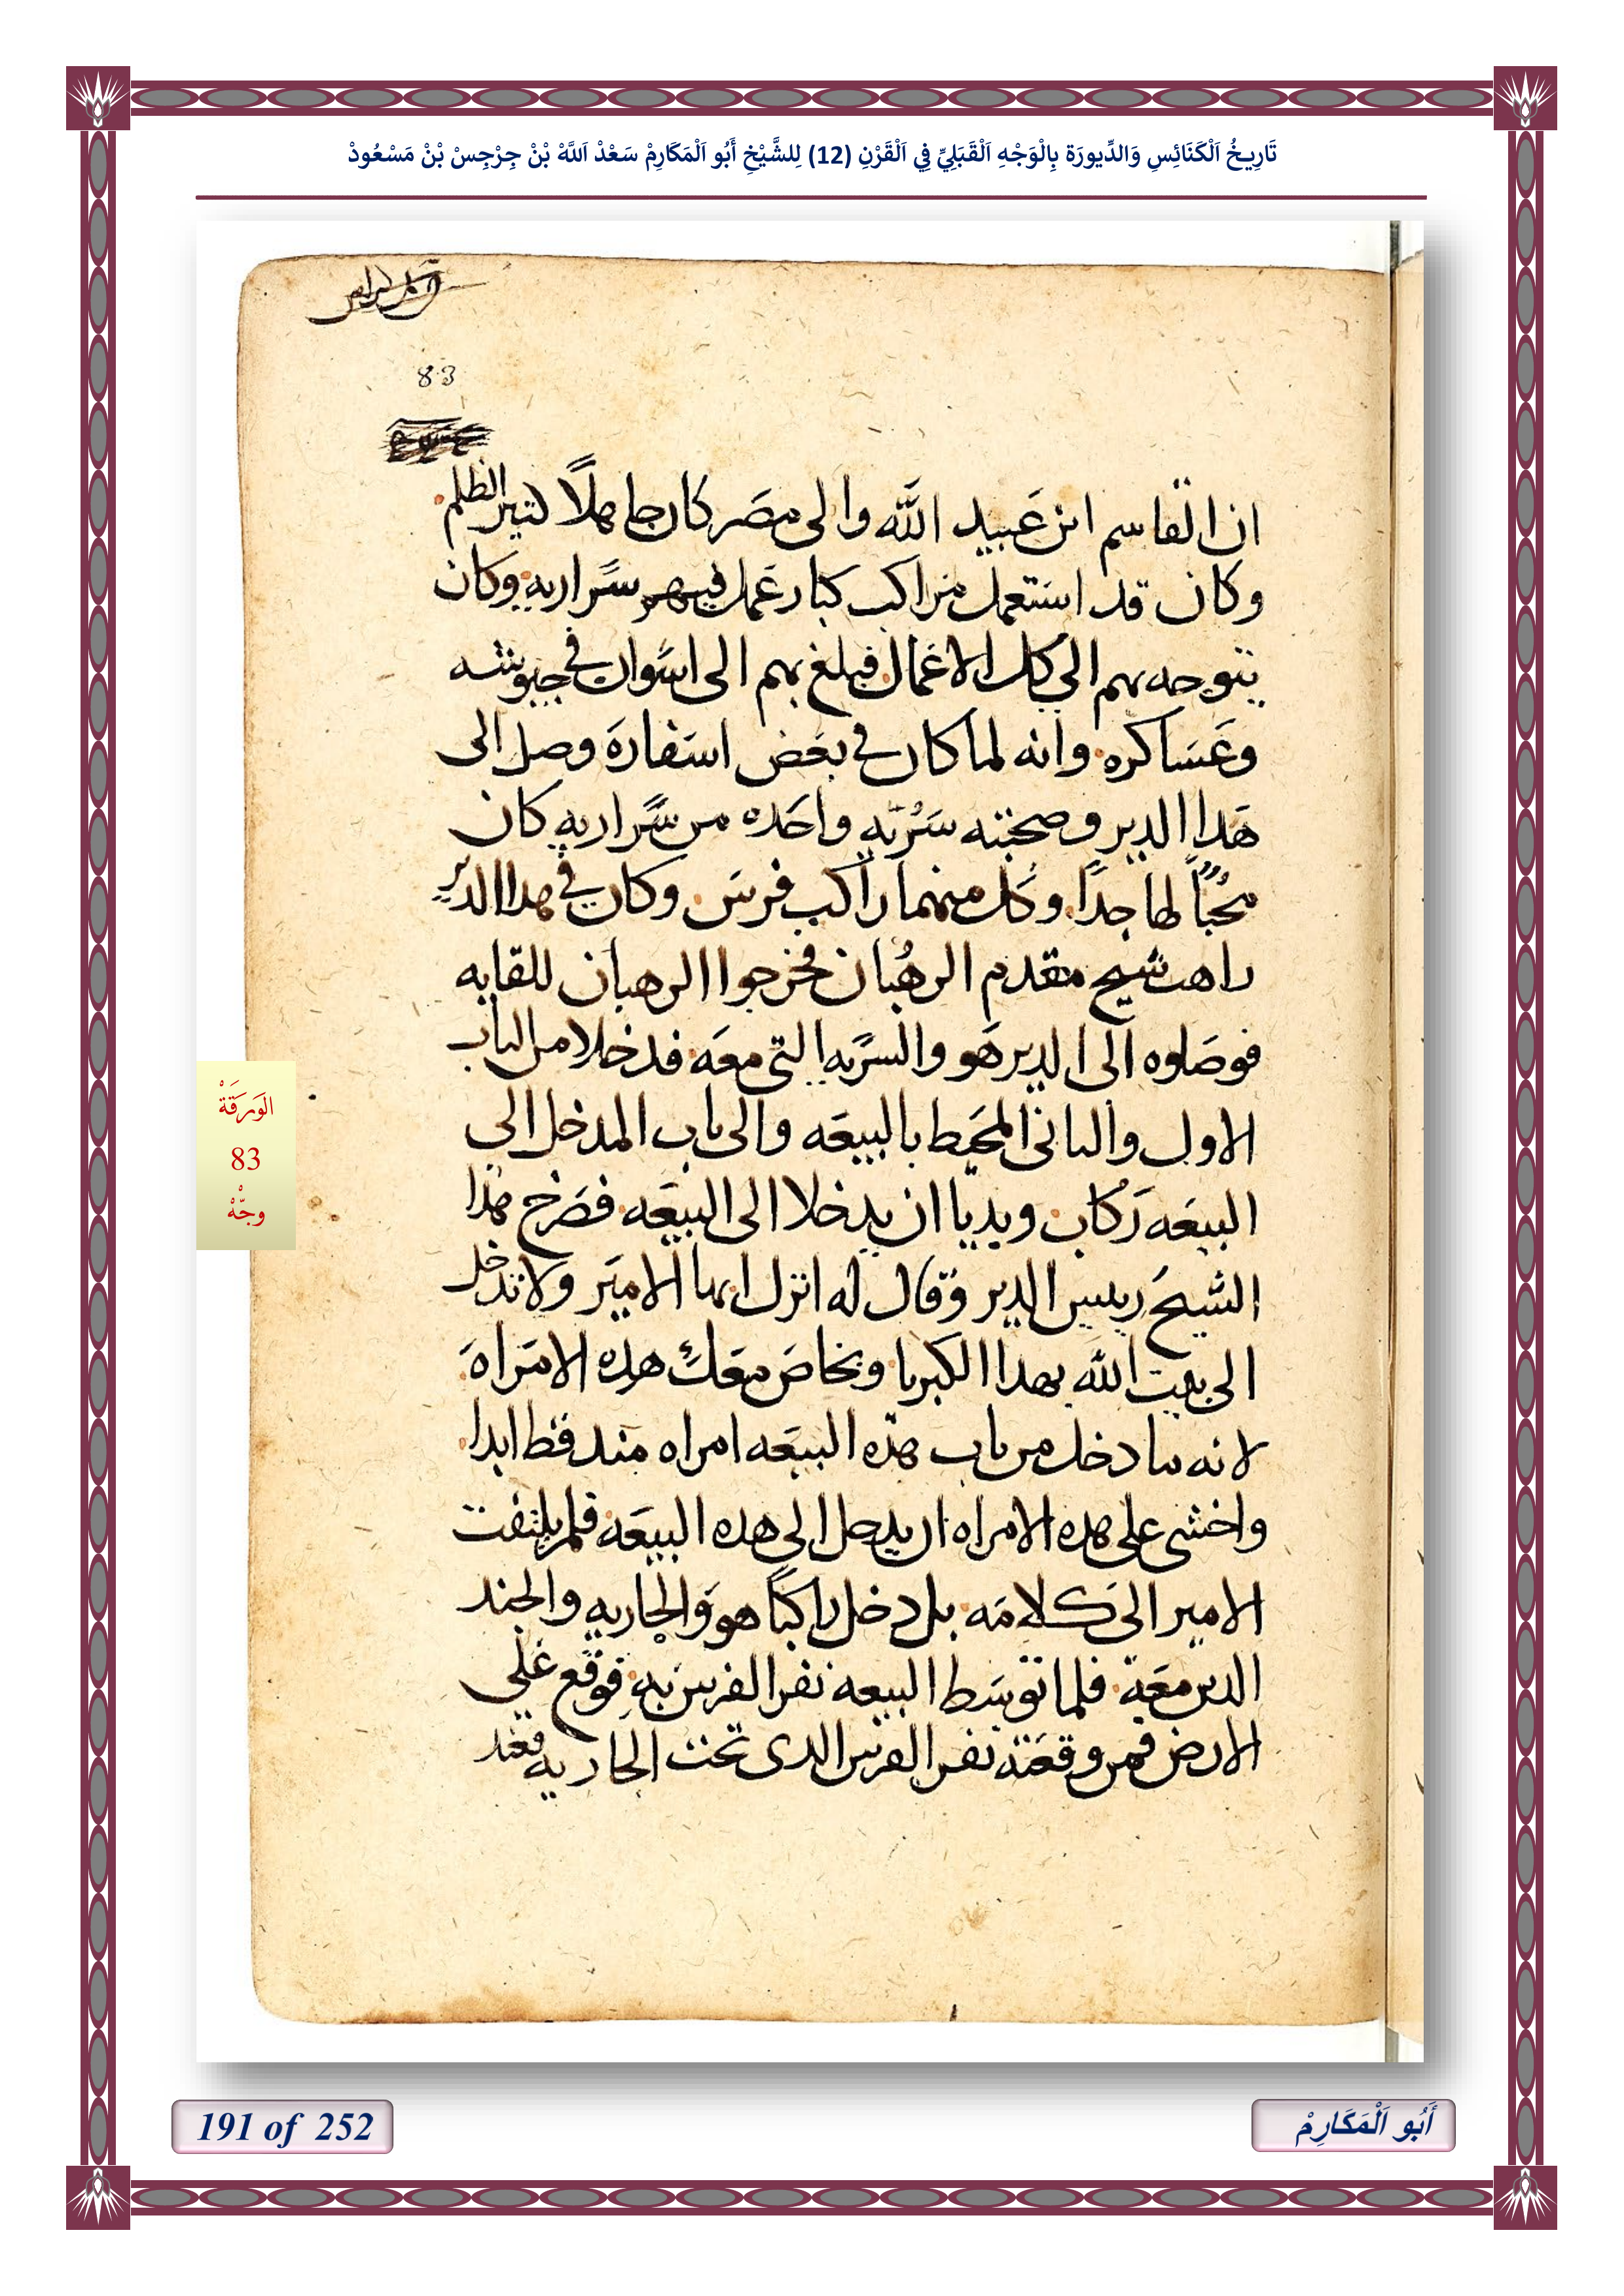 تَارِيخُ اَلْكَنَائِسِ وَالدِّيورَة بِالْوَجْهِ اَلْقَبَلِيِّ فِي اَلْقَرْنِ (12) لِلشَّيْخِ أَبُو اَلْمَكَارِمْ سَعْدْ اَللَّهْ بْنْ جِرْجِسْ بْنْ مَسْعُودْ
83
ان القاسم ابن عبيد الله والى مصر كان جاهلاً كتير الظلم
وكان قد استعمل مراكب كبار عمل فيهم سراريه وكان
يتوجه بهم الي كل الاعمال فبلغ بهم الى اسوان في جيوشه
وعساكره وانه لما كان في بعض اسفاره وصل الى
هدا الدير وصحبته سريه واحده من سراريه كان
محباً لها جداً وكل منهما راكب فرس وكان في هدا الدير
راهب شيخ مقدم الرهبان فخرجوا الرهبان للقايه
فوصلوه الى الدير هو والسريه التى معه فدخلا من الباب
الاول والتانى المحيط بالبيعه والى باب المدخل الي
البيعه ركاب ويديا ان يدخلا الى البيعه فصرخ هدا
الشيخ رييس الدير وقال له انزل ايها الامير ولا تدخل
الى بيت الله بهدا الكبريا وبخاص معك هده الامراه
لانه ما دخل من باب هده البيعه امراه مند قط ابدا
واخشى على هده الامراه ان يدخل الي هده البيعه فلم يلتفت
الامير الى كلامه بل دخل راكباً هو والجاريه والجند
الدين معه فلما توسط البيعه نفر الفرس به فوقع علي
الارض فمن وقعته نفر الفرس الدى تحت الجاريه فعند
الوَرَقَةْ
83
وجْهْ
191 of 252
أَبُو اَلْمَكَارِمْ